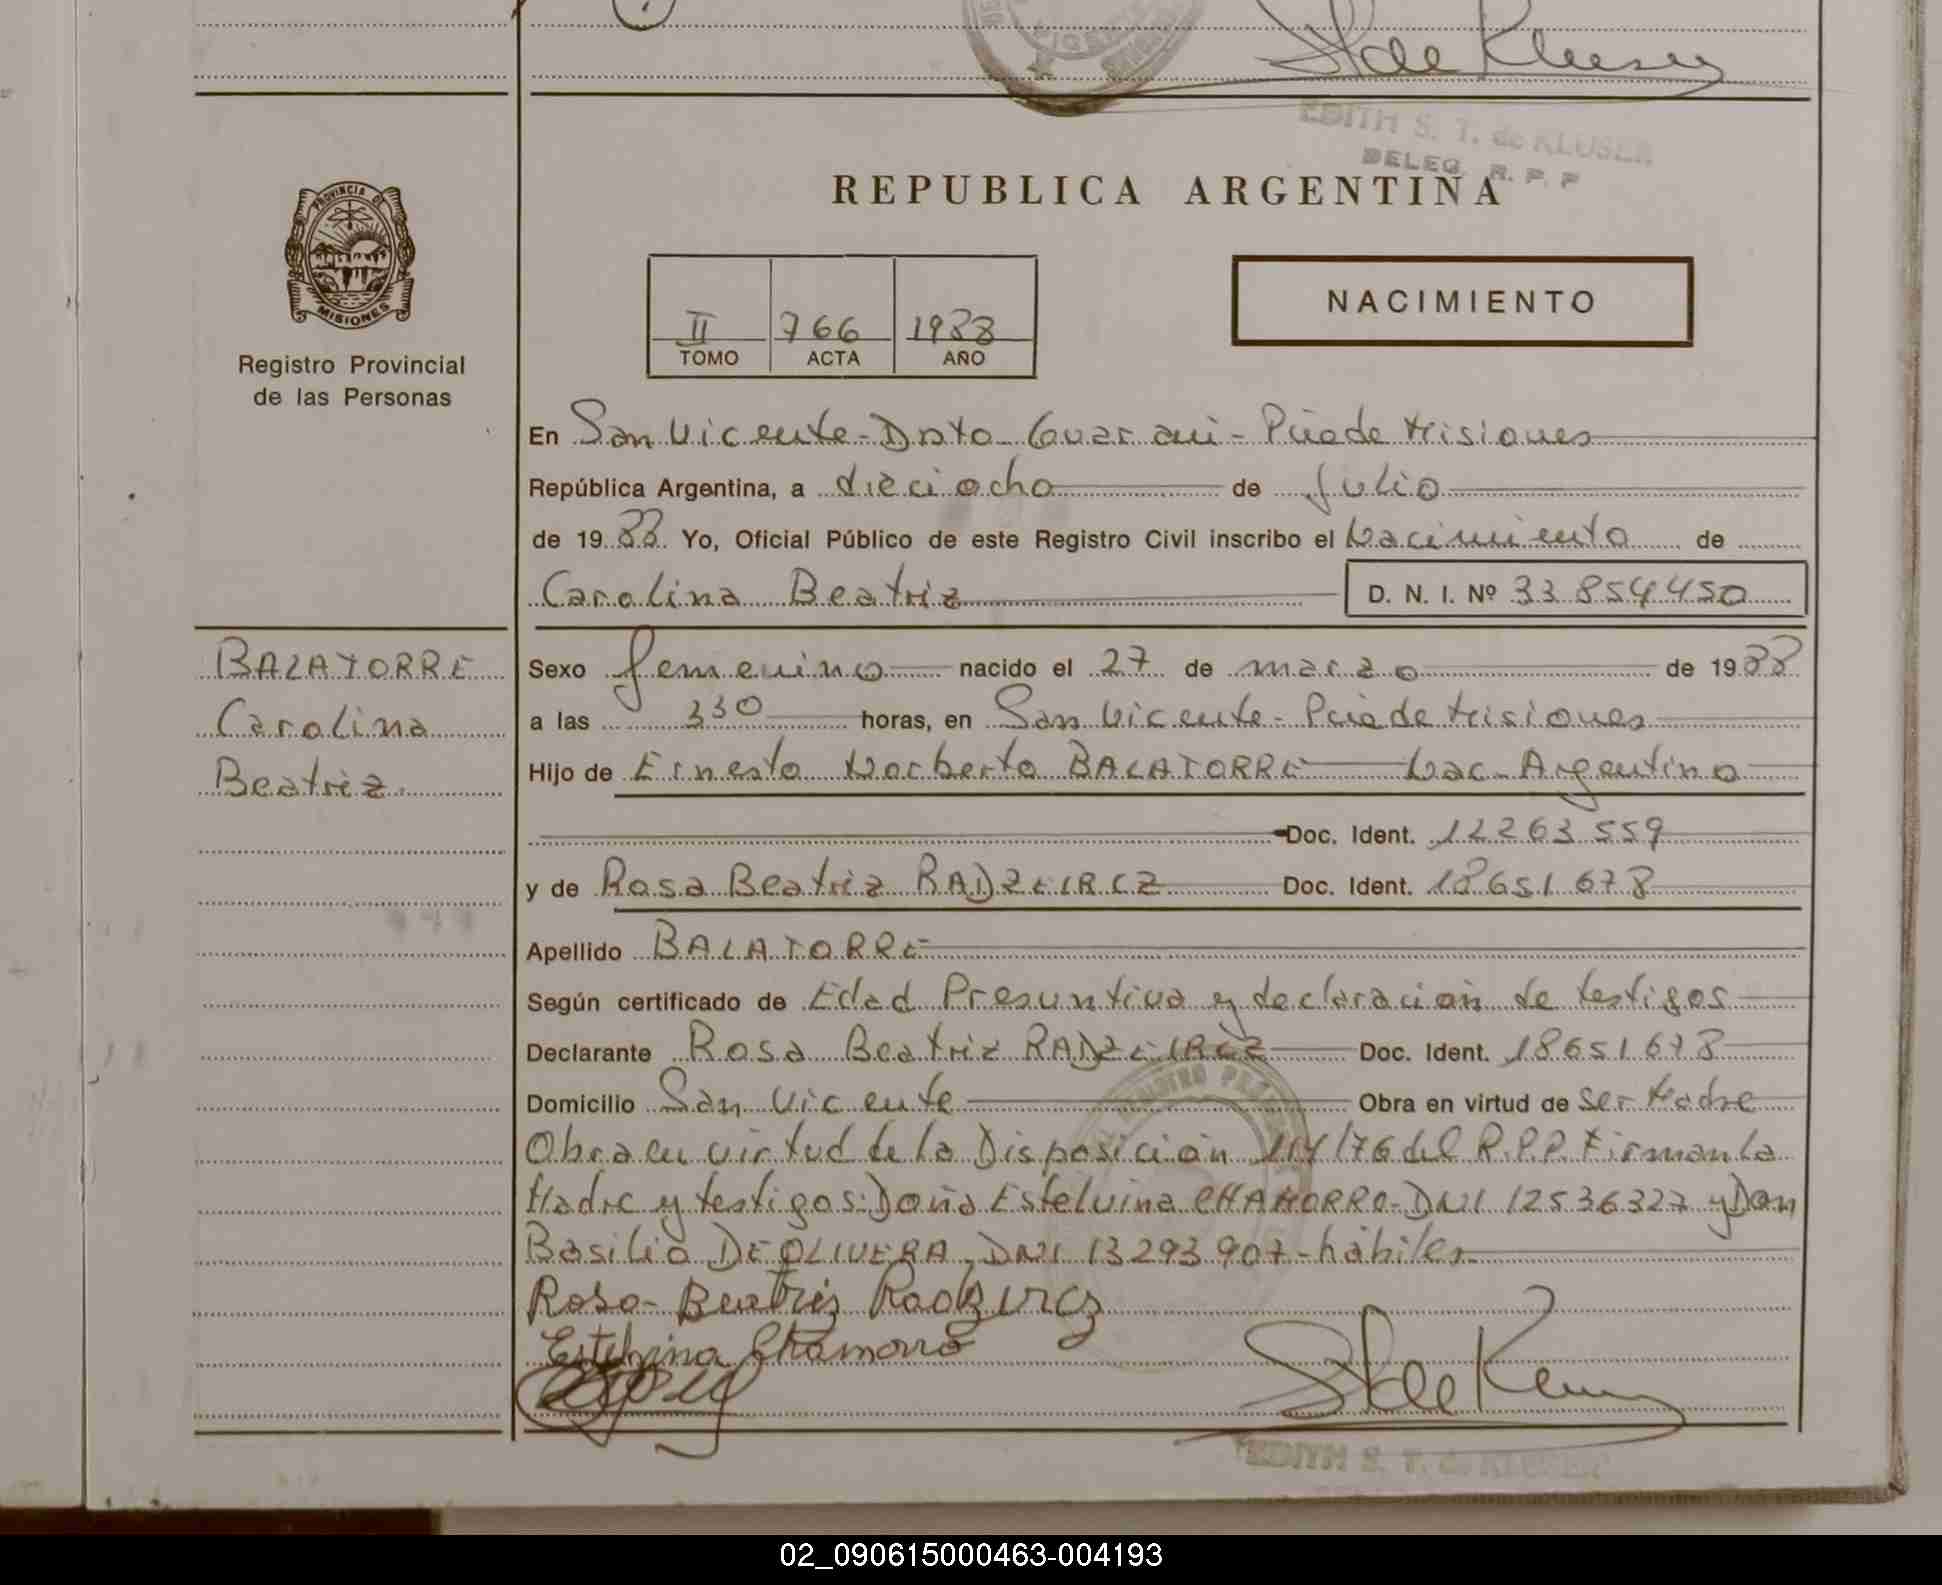 St de Kluser
EDITH S. T. de KLUSER
DELEG. R. P. P
PROVINCIA DE
MISIONES
Registro Provincial
de las Personas
REPUBLICA ARGENTINA
II 766 1988
TOMO ACTA AÑO
NACIMIENTO
En San Vicente - Dpto Guarani - Pcia de Misiones
República Argentina, a dieciocho de julio
de 1988 Yo, Oficial Público de este Registro Civil inscribo el Nacimiento de
Carolina Beatriz D. N. I. Nº 33 854 450
BALATORRE
Carolina
Beatriz
Sexo femenino nacido el 27 de marzo de 1988
a las 330 horas, en San Vicente - Pcia de Misiones
Hijo de Ernesto Norberto BALATORRE Nac - Argentino
Doc. Ident. 12263559
y de Rosa Beatriz RADZEIRCZ Doc. Ident. 18651678
Apellido BALATORRE
Según certificado de Edad Presuntiva y declaración de testigos
Declarante Rosa Beatriz RADZEIRCZ Doc. Ident. 18651678
Domicilio San Vicente Obra en virtud de ser Madre
Obra en virtud de la Disposición 114/76 del R.P.P. Firman la
Madre y testigos: Doña Estelvina CHAMORRO - DNI 12536327 y Don
Basilio DE OLIVERA, DNI 13293907 - hábiles
Rosa - Beatris Radzircz
Estelvina Chamorro
St de Kluser
EDITH S. T. de KLUSER
02_090615000463-004193